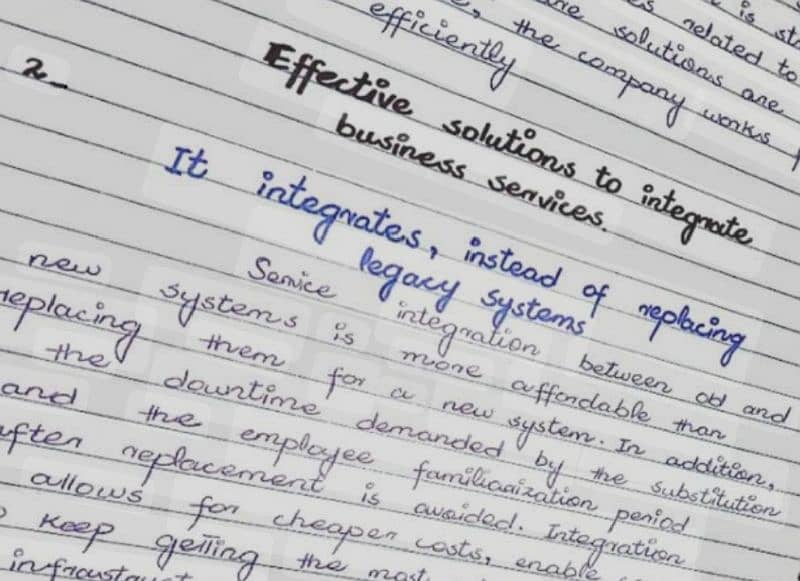 is st
es related to
e, the solutions are
efficiently the company works
2_
Effective solutions to integrate
business services.
It integrates, instead of replacing
legacy systems
Service integration between old and
new systems is more affordable than
replacing them for a new system. In addition,
the downtime demanded by the substitution
and the employee familiarization period
after replacement is avoided. Integration
allows for cheaper costs, enable
keep getting the most
infraustruct